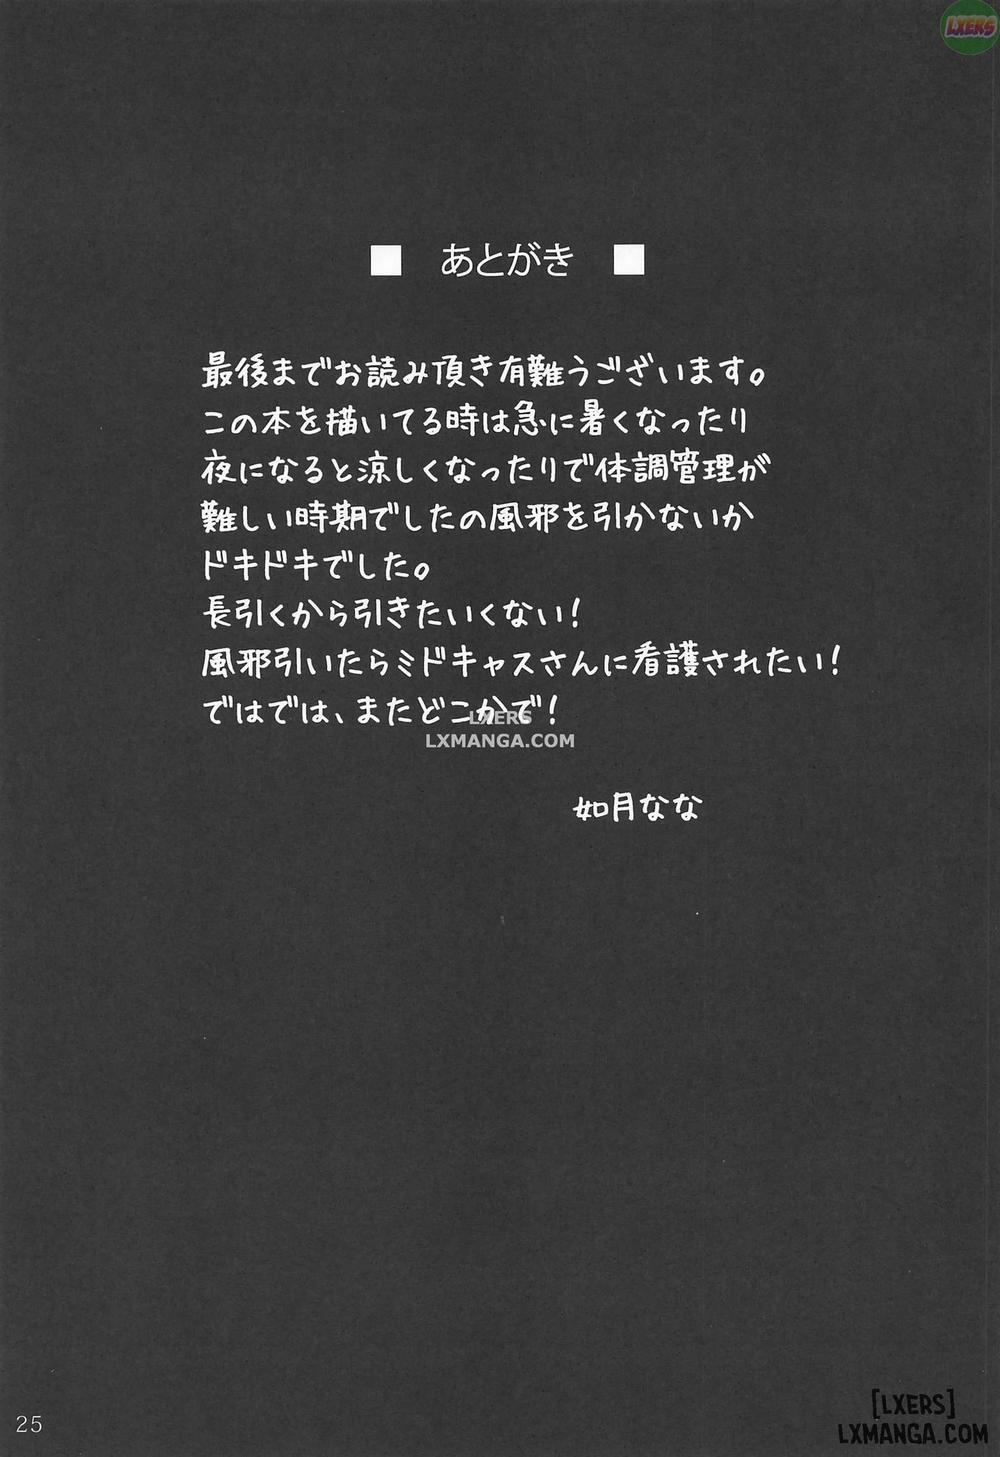 LXERS
■ あとがき ■
最後までお読み頂き有難うございます。
この本を描いてる時は急に暑くなったり
夜になると涼しくなったりで体調管理が
難しい時期でしたの風邪を引かないか
ドキドキでした。
長引くから引きたいくない!
風邪引いたらミドキャスさんに看護されたい!
ではでは、またどこかで!
LXERS
LXMANGA.COM
如月なな
25
[LXERS]
LXMANGA.COM